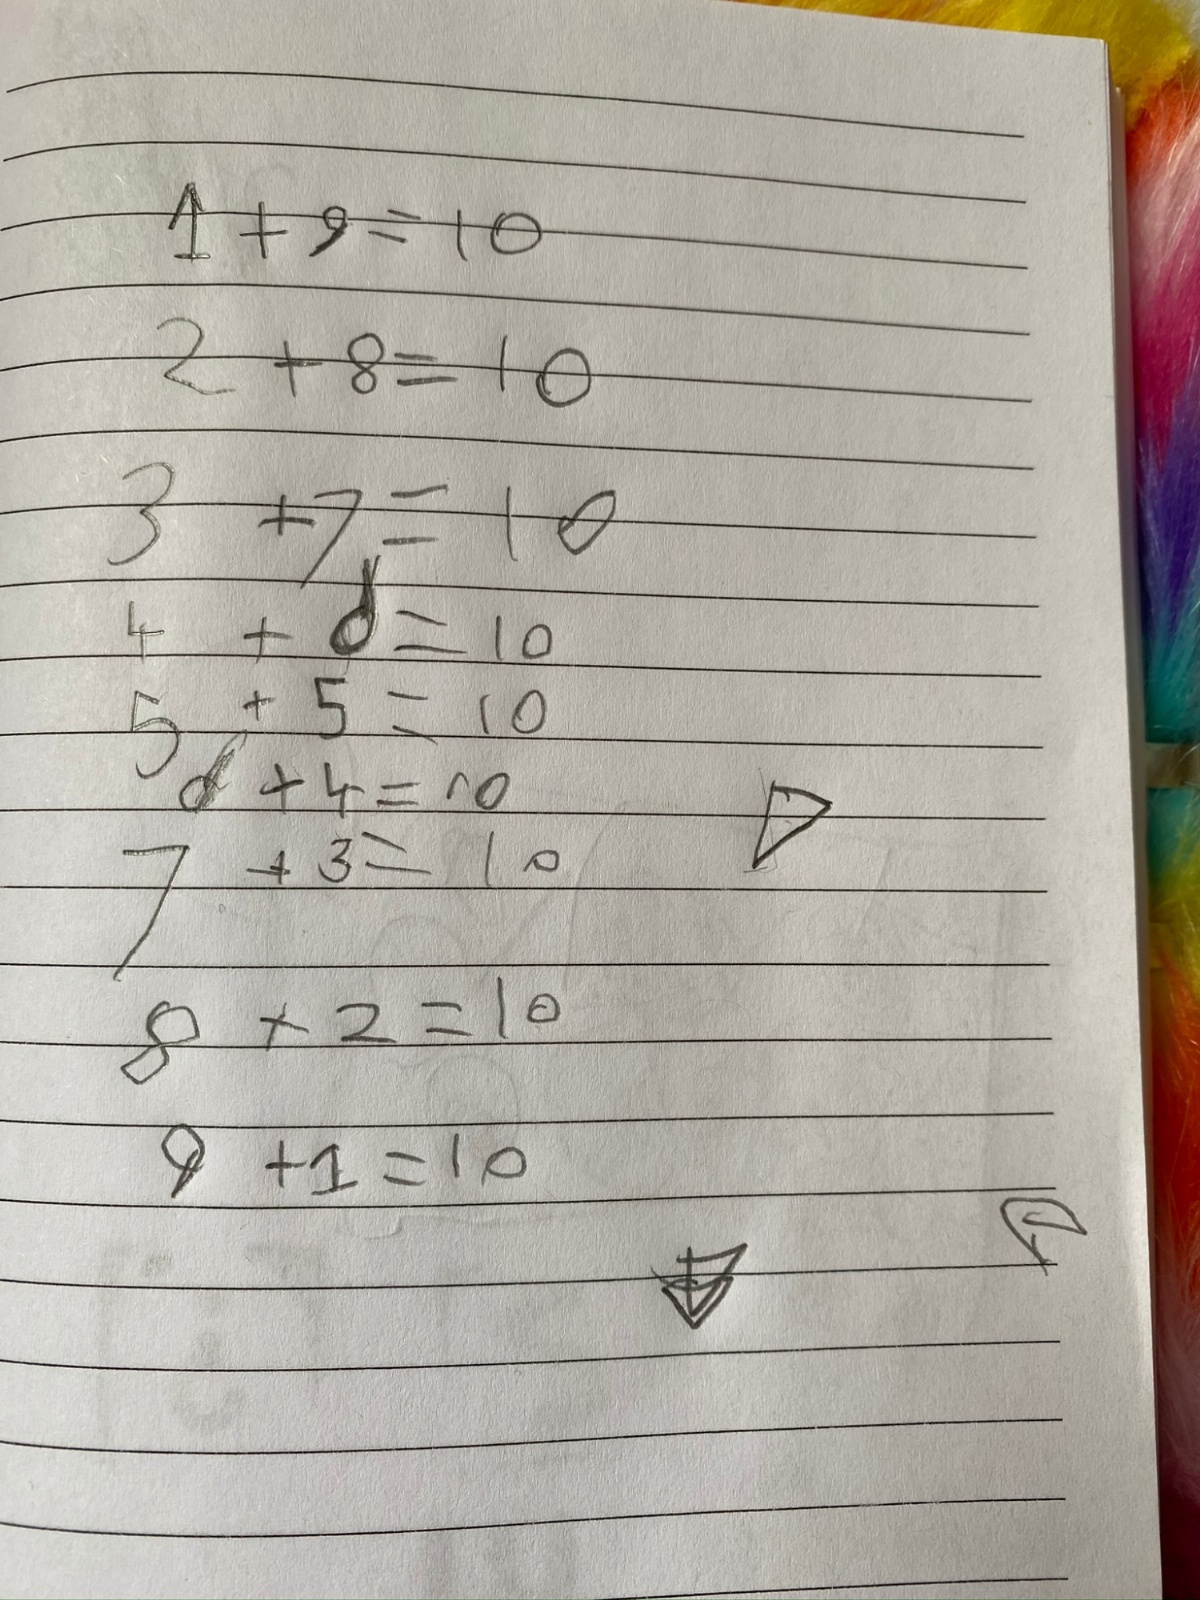 1 + 9 = 10
2 + 8 = 10
3 + 7 = 10
4 + 6 = 10
5 + 5 = 10
6 + 4 = 10
7 + 3 = 10
8 + 2 = 10
9 + 1 = 10